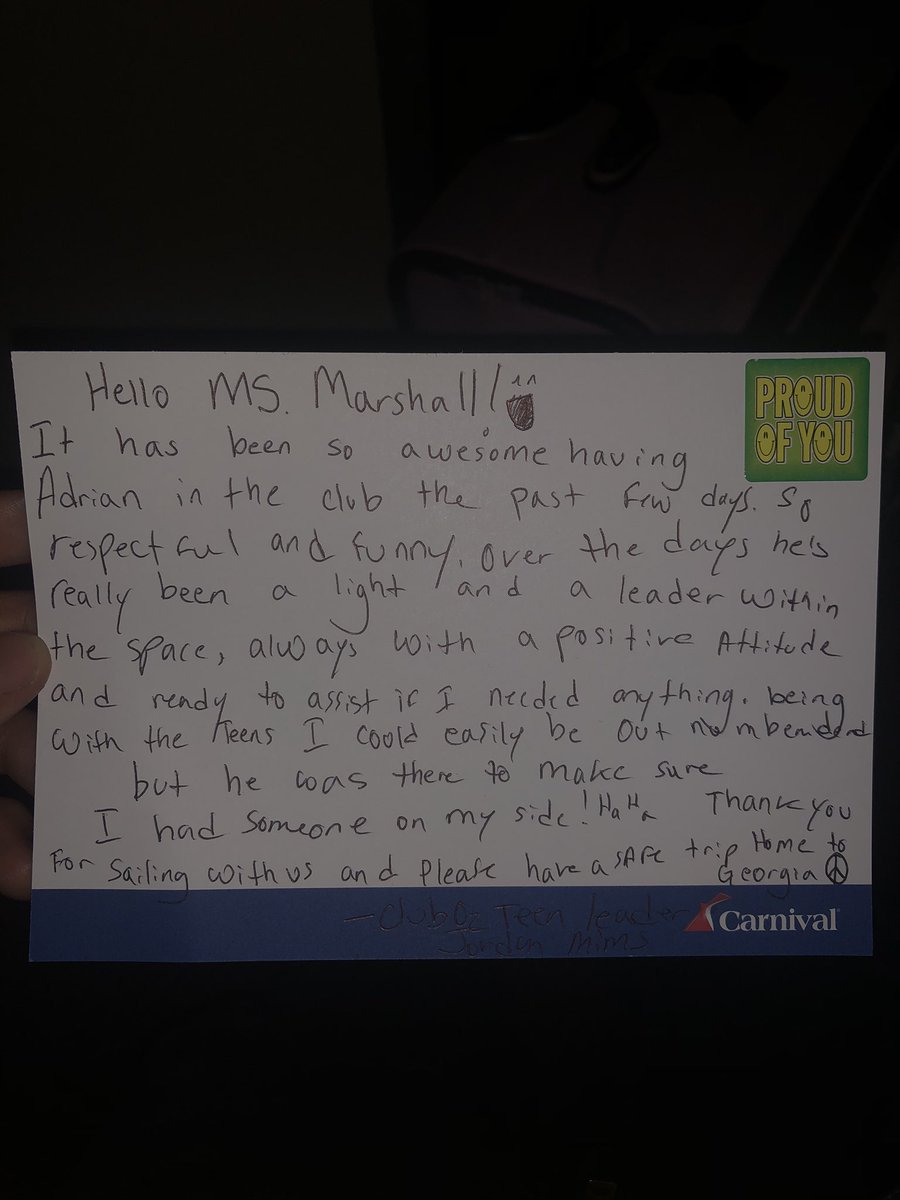 Hello MS. Marshall!
PROUD
OF YOU
It has been so awesome having
Adrian in the club the past few days. So
respectful and funny. Over the days he's
really been a light and a leader within
the space, always with a positive Attitude
and ready to assist if I needed anything. being
with the Teens I could easily be out
but he was there to make sure
I had someone on my side! HaHa Thank you
For Sailing with us and please have a sAFe trip Home to
Georgia
-Club O2 Teen leader
Jordan Mims
Carnival